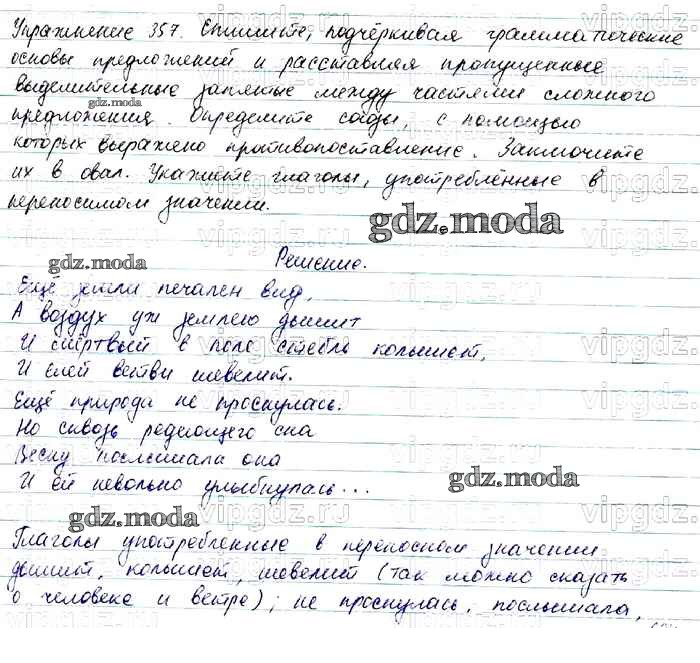 Упражнение 357. Спишите, подчёркивая грамматические
основы предложений и расставляя пропущенные
выделительные запятые между частями сложного
gdz.moda
предложения. Определите союзы, с помощью
которых выражено противопоставление. Заключите
их в овал. Укажите глаголы, употреблённые в
переносимом значении.
gdz.moda
gdz.moda
Решение.
Ещё земли печален вид,
А воздух уж землею дышит
И мёртвый в поле стебль колышет,
И елей ветви шевелит.
Ещё природа не проснулась.
Но сквозь редеющего сна
Весну послышала она
И ей невольно улыбнулась...
gdz.moda
gdz.moda
Глаголы употребленные в переносном значении
дышит, колышет, шевелит (так можно сказать
о человеке и ветре); не проснулась, послышала,